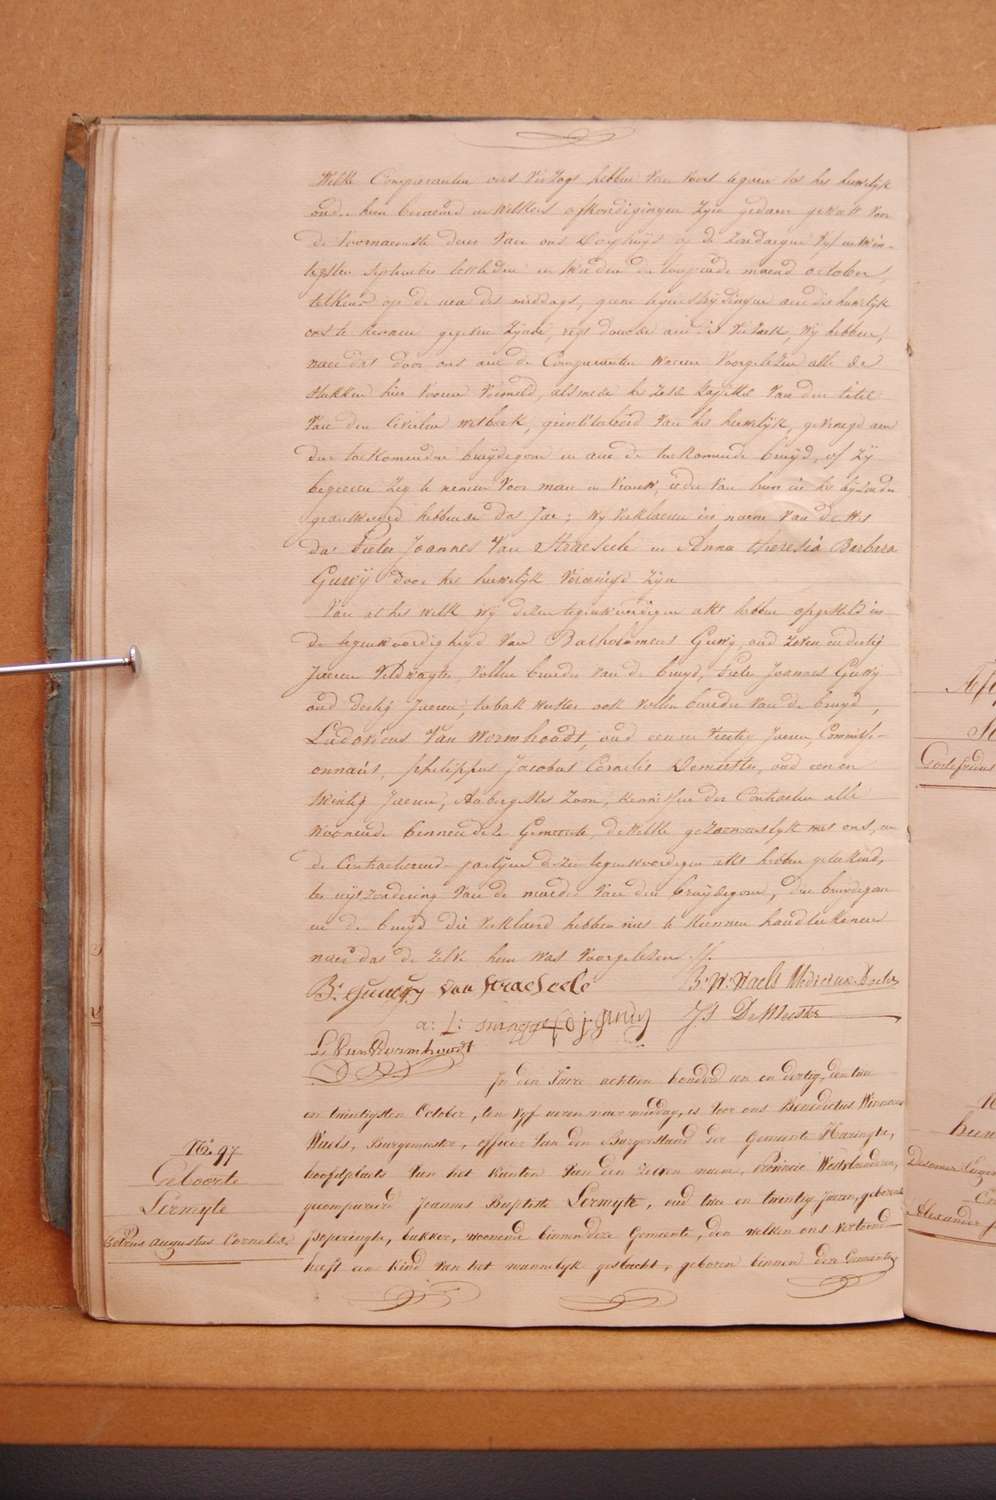 Welke Comparanten ons verzogt hebben van voort te gaen tot het huwelijk
onder hun beraemd en welkers afkondigingen zijn gedaen geweest voor
de voornaemste deur van ons Dorphuijs op de Zondaegen vijf en twin-
tigsten september lestleden en tweeden der loopende maend october,
telkens op de ure des middags, geene tegenstrijdingen aen dit huwelijk
ons te kennen gegeven zijnde, regt doende aen dit verzoek, wij hebben,
naer dat door ons aen de Comparanten waeren voorgelezen alle de
stukken hier boven vermeld, alsmede het zesde kapittel van den titel
van den Civielen wetboek, geintituleerd van het huwelijk, gevraegd aen
den toekomenden bruijdegom en aen de toekomende bruijd, of zij
begeeren zig te nemen voor man en vrouw, ieder van hun in het bijzonder
geantwoord hebbende Das Jae; wij verklaeren in naem van de wet
dat Pieter Joannes Van Straeseele en Anna Theresia Barbara
Guwij door het huwelijk vereenigd zijn
Van al het welk wij dezen tegenwoordigen akt hebben opgesteld in
de tegenwoordigheyd van Bartholomeus Guwij, oud zeven en dertig
Jaeren veldwagter, vollen broeder van de bruyd, Pieter Joannes Guwij
oud dertig Jaeren, tabak werker ook vollen broeder van de bruyd,
Ludovicus Van Wormhoudt, oud een en veertig Jaeren, Commissi-
onnaris, Philippus Jacobus Cornelis Demeester, oud een en
twintig Jaeren, Aubergisten zoon, kennissen der Contracten alle
woonende binnen deze Gemeente, de welke gezaementlyk met ons, en
de Contracterende partijen dezen tegenwoordigen akt hebben geteekend,
ter uijtzondering van de moeder van den bruijdegom, den bruidegom
en de bruyd die verklaerd hebben niet te kunnen handteekenen
naer dat de zelve hun was voorgelezen ./.
Bs. Guwy van Straeseele B: W: Waels Medicinae Doctor
a: L: p: j: guwy PJ DeMeester
L. Van Wormhoudt
In den Jaere achtien honderd een en dertig, den
en twintigsten October, ten vyf ueren naer middag, is voor ons Benedictus Winnocus
Waels, Burgemeester, officier van den Burgerstand der Gemeente Haringhe,
hoofdplaets van het Kanton van den zelven naem, Provincie Westvlanderen,
gecompareerd Joannes Baptiste Lermyte, oud twee en twintig Jaeren, geboren
Poperinghe, bakker, woonende binnen deze Gemeente, den welken ons vertoond
heeft een kind van het mannelyk geslacht, geboren binnen deze Gemeente
No. 97
Geboorte
Lermyte
Petrus Augustus Cornelis